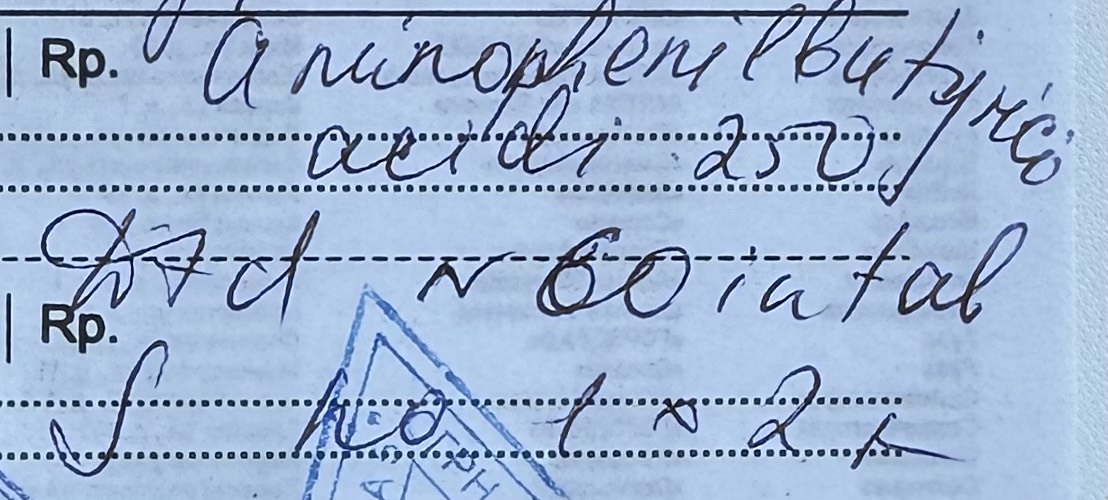 Rp. Aminophenilbutyrici
acidi 250
Dtd N 60 in tab
Rp.
S по 1 × 2 р